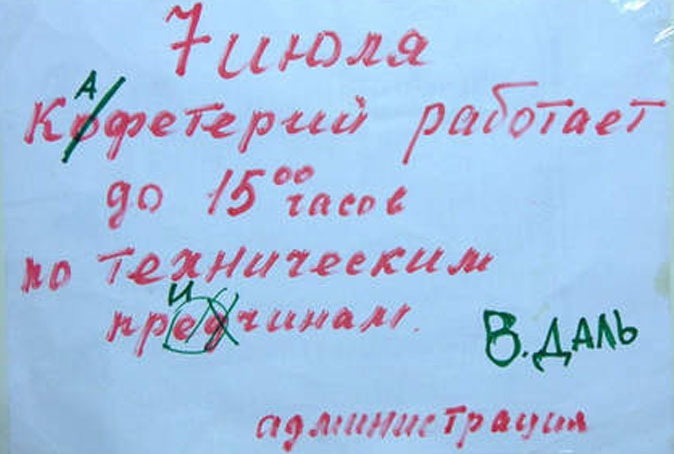 7 июля
А
Кофетерий работает
до 15⁰⁰ часов
по техническим
и
предчинам.
В. ДАЛЬ
администрация